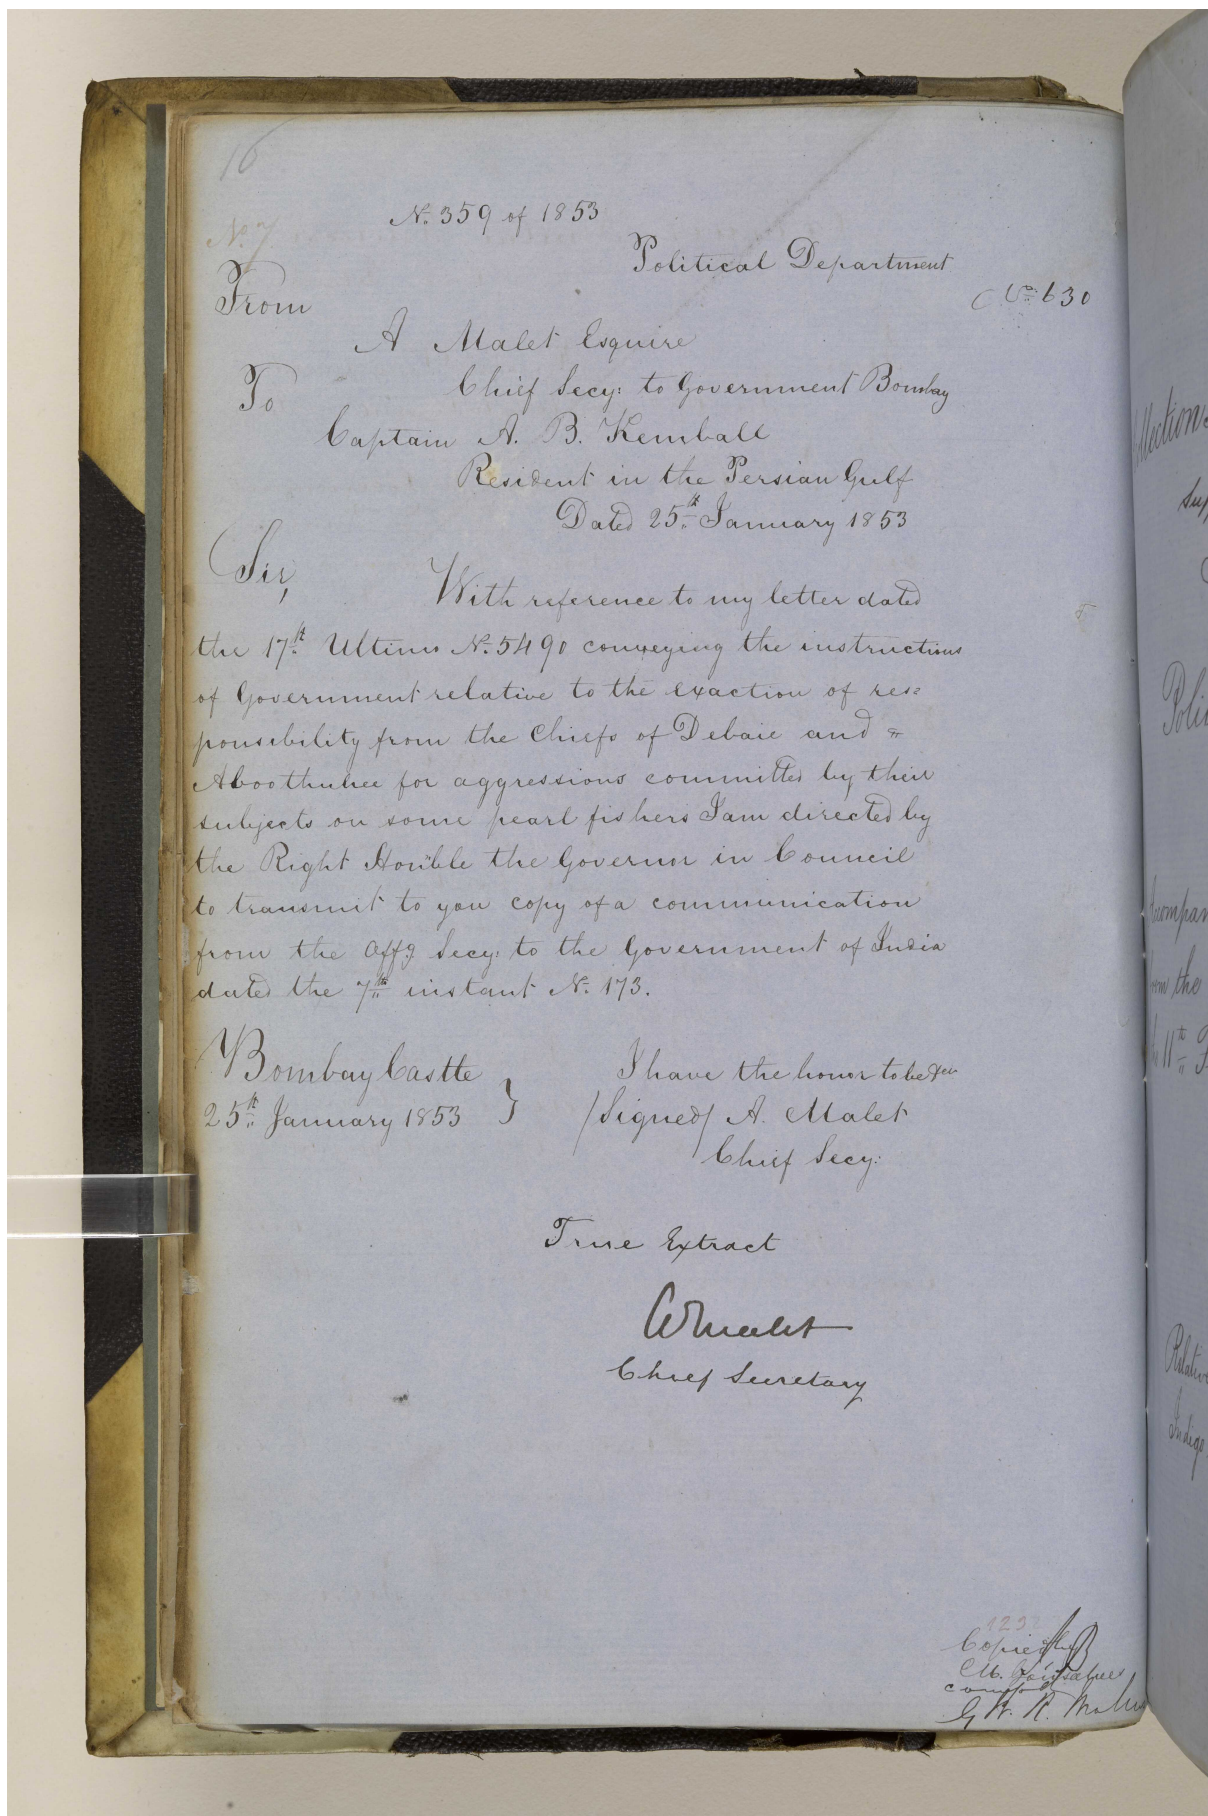 16
No. 359 of 1853
No. 7
Political Department
No. 630
From
A Malet Esquire
To
Chief Secy: to Government Bombay
Captain A. B. Kemball
Resident in the Persian Gulf
Dated 25th January 1853
Sir,
With reference to my letter dated
the 17th Ultimo No. 5490 conveying the instructions
of Government relative to the exaction of res=
ponsibility from the Chiefs of Debaie and
Aboothubee for aggressions committed by their
subjects on some pearl fishers I am directed by
the Right Hon'ble the Governor in Council
to transmit to you copy of a communication
from the Offg. Secy: to the Government of India
dated the 7th instant No. 173.
Bombay Castle
25th January 1853 }
I have the honor to be &ca
/Signed/ A. Malet
Chief Secy:
True Extract
A Malet
Chief Secretary
Copied by